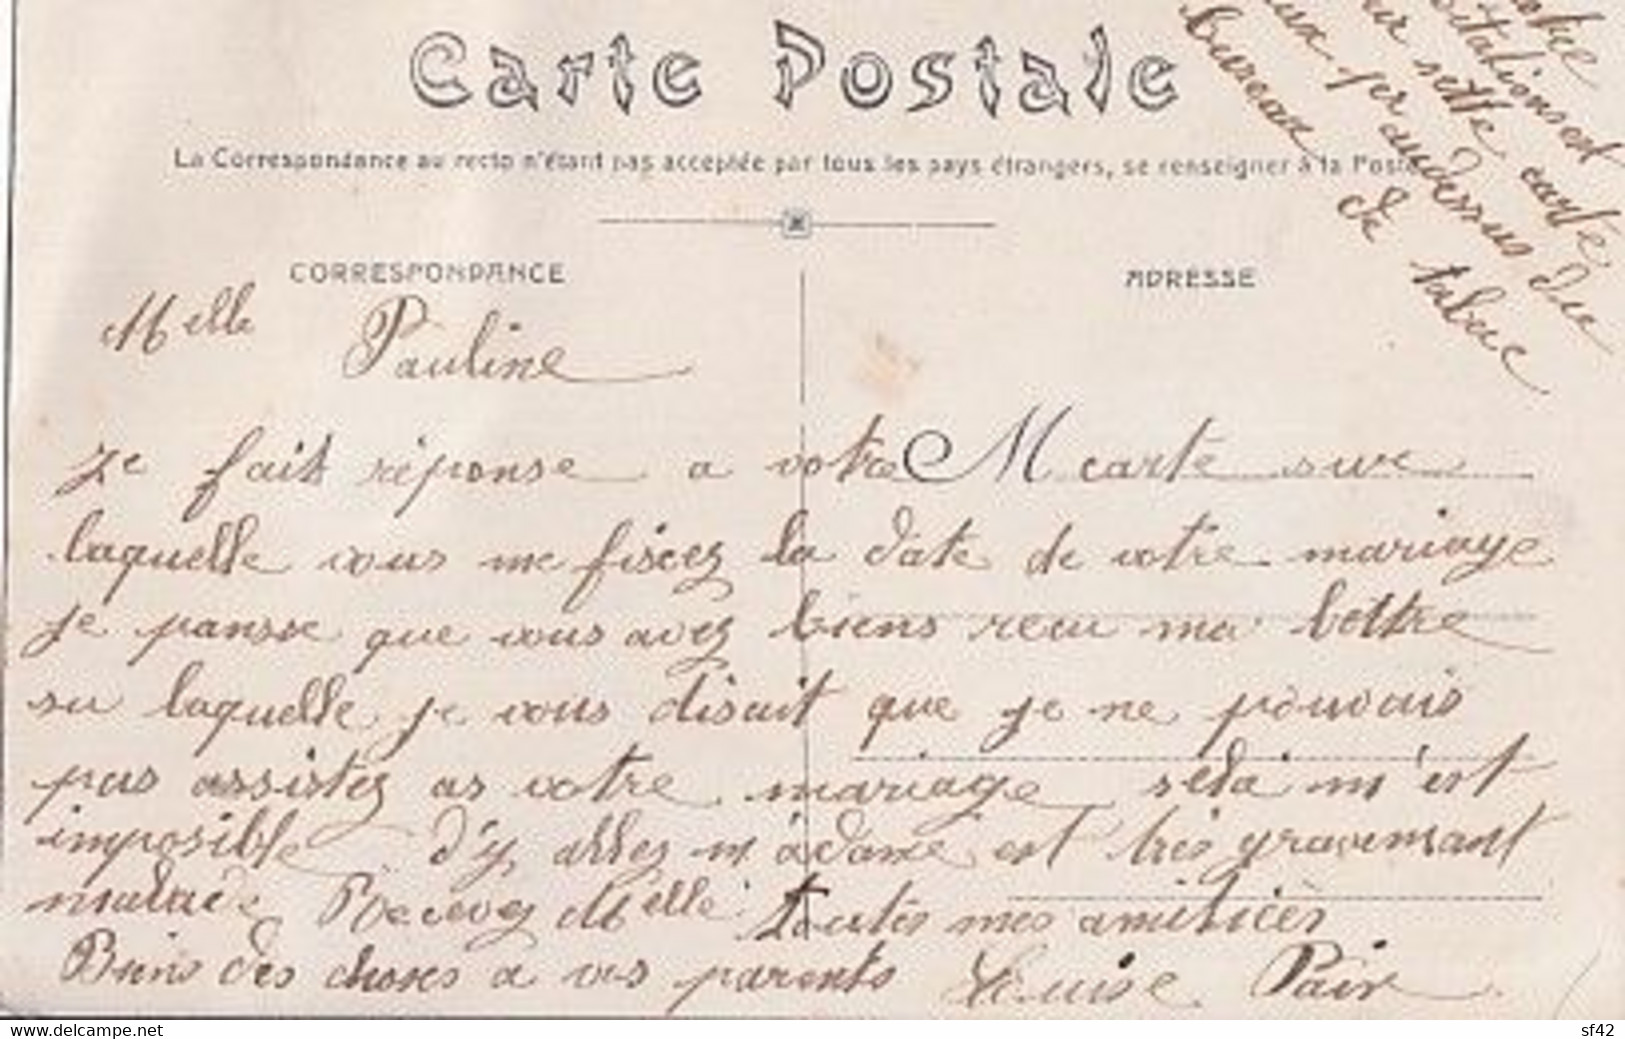 Carte Postale
La Correspondance au recto n'étant pas acceptée par tous les pays étrangers, se renseigner à la Poste
sur sette carte
au dessus du
bureau de tabac
CORRESPONDANCE
ADRESSE
Melle Pauline
Je fait réponse a votre M carte sur
laquelle vous me fiscez la date de votre mariage
je pansse que vous avez biens recu ma lettre
su laquelle je vous disait que je ne pouvais
pas assistez as votre mariage sela m'est
imposible d'y allez m'adame est très gravemant
malade Recevez Melle toutes mes amitiées
Biens des choses a vos parents Louise Pair
delcampe.net
sf42